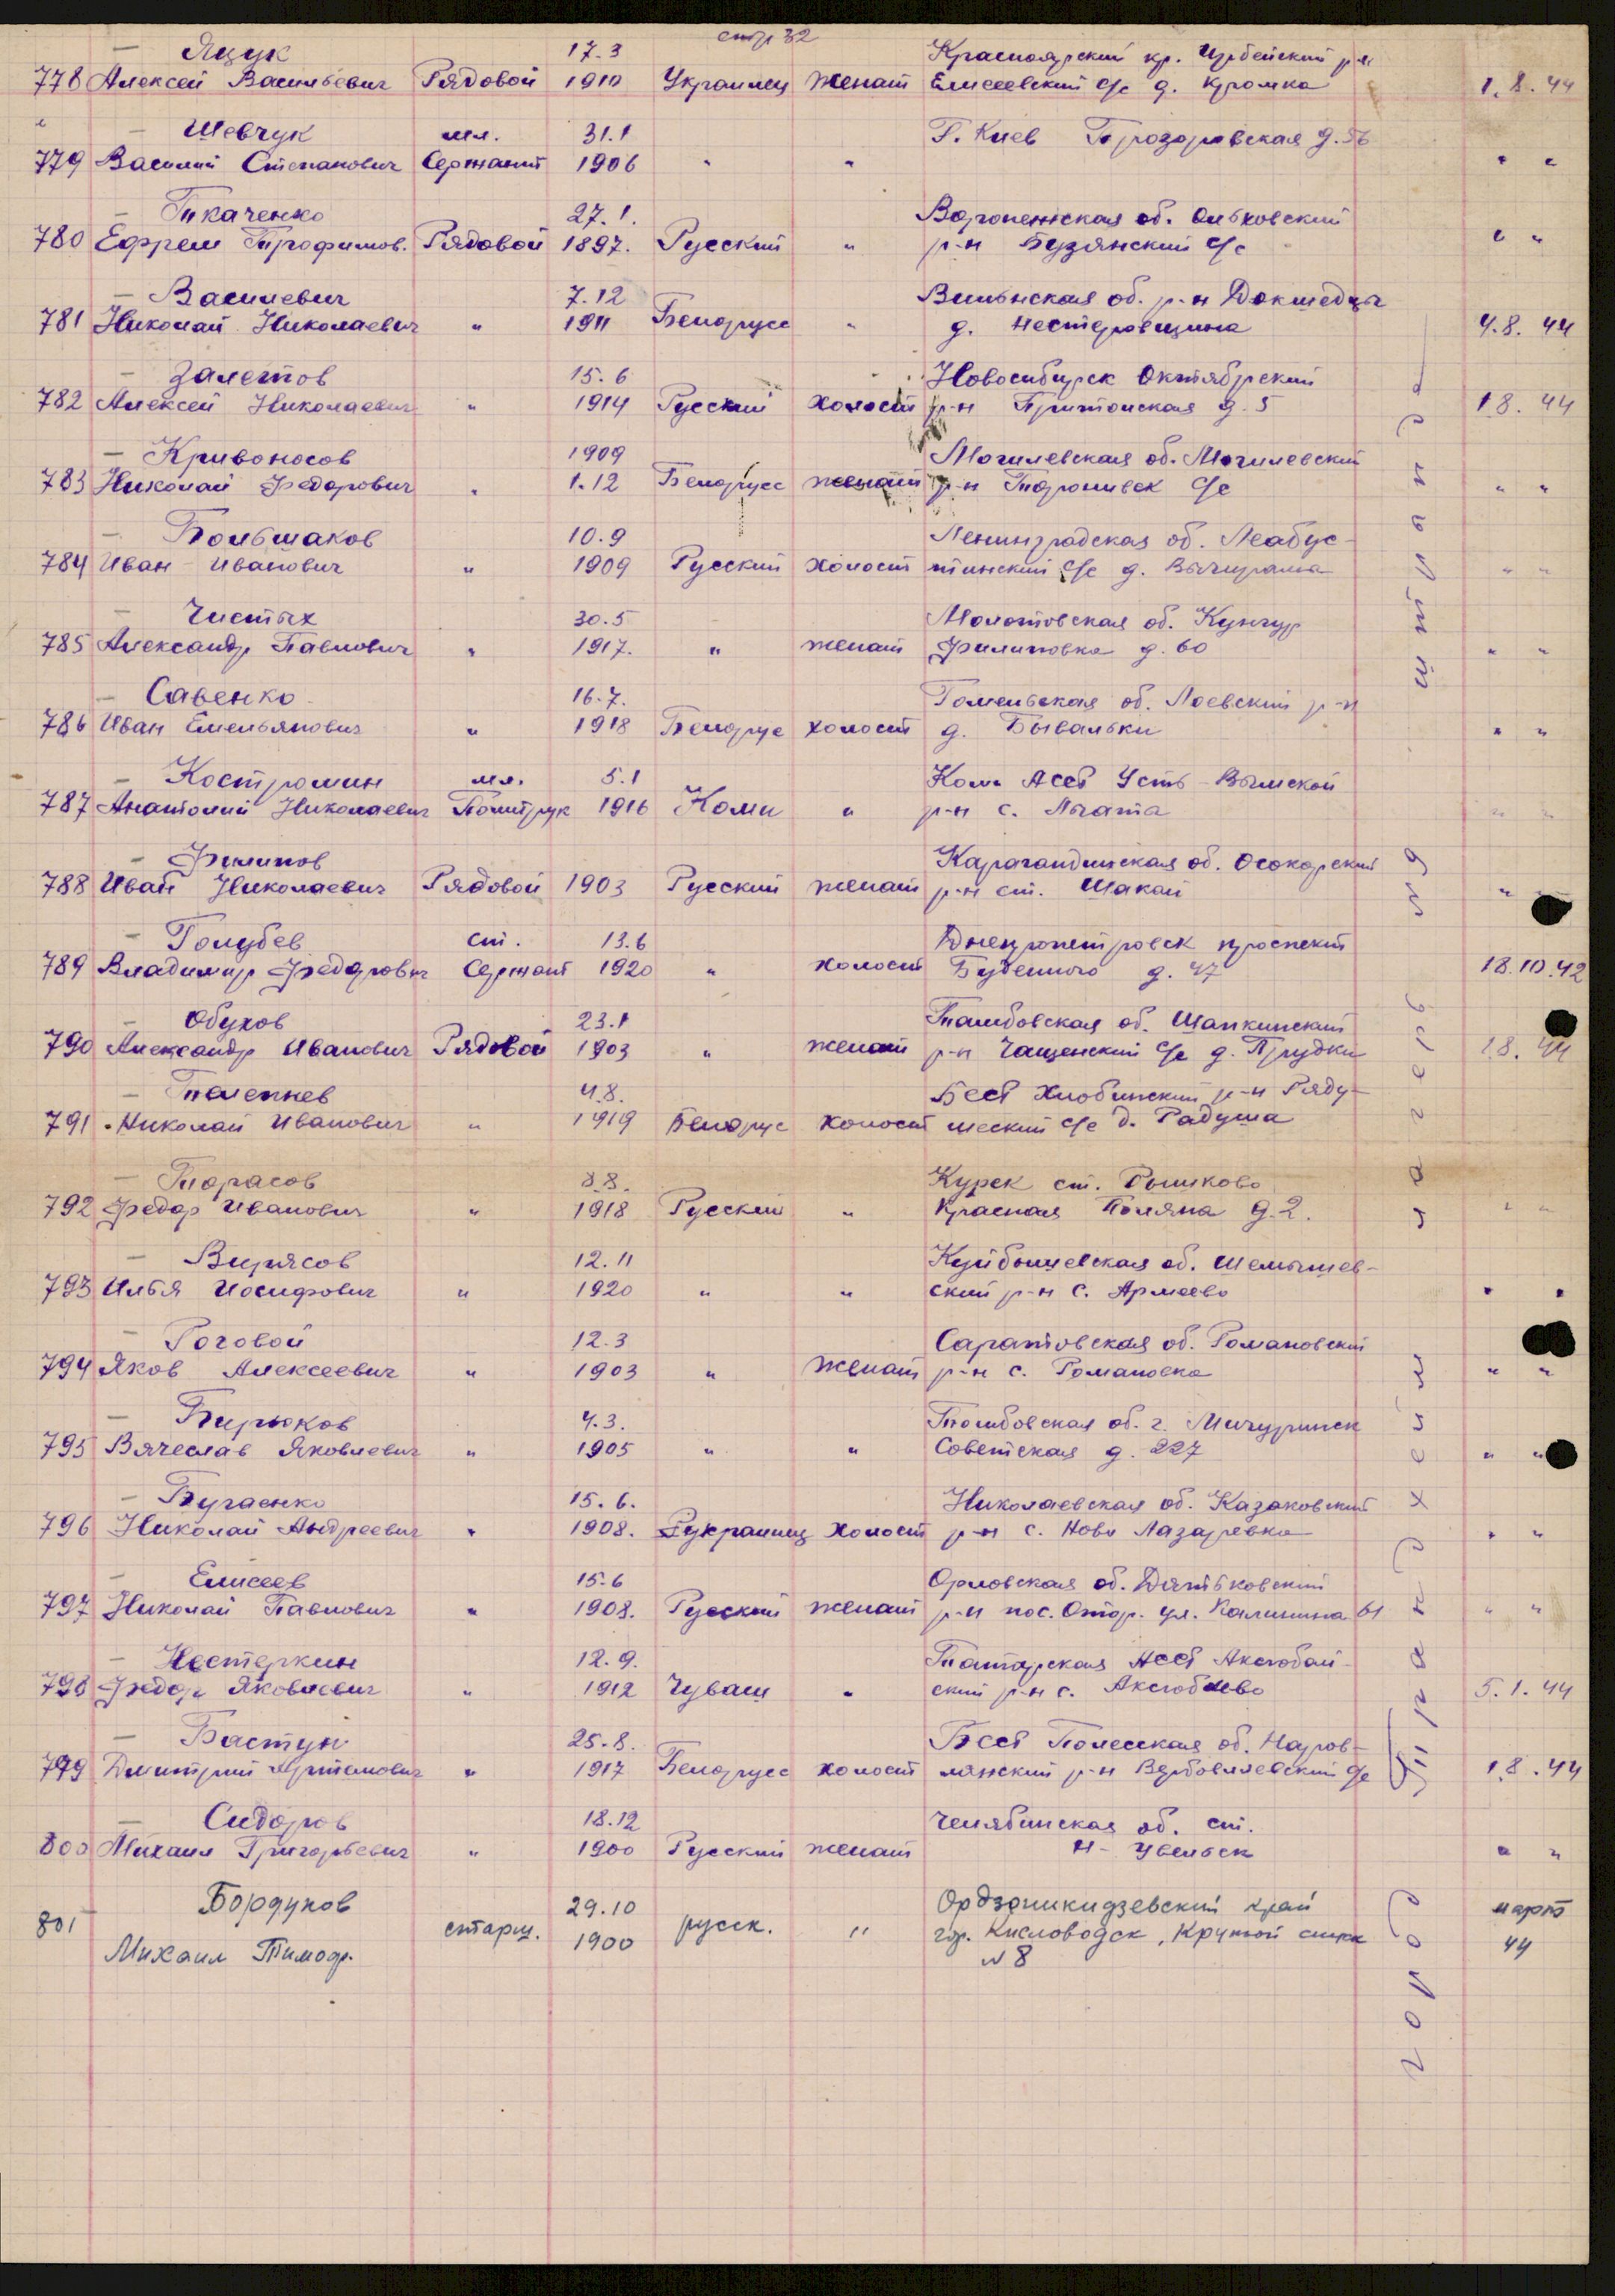 стр 32
— Яцук 17.3 Красноярский кр. Ирбейский р-н
778 Алексей Васильевич Рядовой 1910 Украинец женат Елисеевский с/с д. Кромка 1.8.44
— Шевчук мл. 31.1 Г. Киев Прозоровская д. 56
779 Василий Степанович Сержант 1906 " " " "
— Ткаченко 27.1. Воронежская об. Ольховский
780 Ефрем Трофимов. Рядовой 1897. Русский " р-н Бузянский с/с " "
— Василевич 7.12 Вильнская об. р-н Докшедцы
781 Николай Николаевич " 1911 Белорусс " д. Нестеровщина 4.8.44
— Залетов 15.6 Новосибирск Октябрский
782 Алексей Николаевич " 1914 Русский холост р-н Притомская д. 5 1.8.44
— Кривоносов 1909 Могилевская об. Могилевский
783 Николай Федорович " 1.12 Белорусс женат р-н с/с " "
— Большаков 10.9 Ленинградская об.
784 Иван Иванович " 1909 Русский холост тинский с/с д. " "
— Чистых 30.5 Молотовская об. Кунгур
785 Александр Павлович " 1917. " женат Филиповка д. 60 " "
— Савенко 16.7. Гомельская об. Лоевский р-н
786 Иван Емельянович " 1918 Белорус холост д. Бывальки " "
— Костромин мл. 5.1 Коми АССР Усть-Вымской
787 Анатолий Николаевич Политрук 1916 Коми " р-н с. Лычата " "
— Филипов Карагандинская об. Осокарский
788 Иван Николаевич Рядовой 1903 Русский женат р-н ст. Шакай " "
— Голубев ст. 13.6 Днепропетровск проспект
789 Владимир Федорович Сержант 1920 " холост Буденного д. 47 18.10.42
— Обухов 23.1 Тамбовская об. Шапкинский
790 Александр Иванович Рядовой 1903 " женат р-н Чащенский с/с д. Прудки 1.8.44
— Телепнев 4.8. БССР Хлобинский р-н Ряду-
791 Николай Иванович " 1919 Белорус холост шский с/с д. Радуша
— Тарасов 8.8. Курск ст. Рышково
792 Федор Иванович " 1918 Русский " Красная Поляна д. 2. " "
— Вирясов 12.11 Куйбышевская об. Шемышев-
793 Илья Иосифович " 1920 " " ский р-н с. Армеево " "
— Роговой 12.3 Саратовская об. Романовский
794 Яков Алексеевич " 1903 " женат р-н с. Романовка " "
— Бирюков 4.3. Тамбовская об. г. Мичуринск
795 Вячеслав Яковлевич " 1905 " " Советская д. 227 " "
— Бугаенко 15.6. Николаевская об. Казаковский
796 Николай Андреевич " 1908. украинец холост р-н с. Ново Лазаревка " "
— Елисеев 15.6 Орловская об. Дятьковский
797 Николай Павлович " 1908. Русский женат р-н пос. ул. Калинина 61 " "
— Нестеркин 12.9. Татарская АССР Аксюбай-
798 Федор Яковлевич " 1912 Чуваш " ский р-н с. Аксюбаево 5.1.44
— Бастун 25.8. БССР Полесская об. Наров-
799 Дмитрий Артемович " 1917 Белорусс холост лянский р-н Вербовлевский с/с 1.8.44
— Сидоров 18.12 Челябинская об. ст.
800 Михаил Григорьевич " 1900 Русский женат Н-Увельск " "
Бордуков 29.10 Орджоникидзевский край март
801 Михаил Тимоф. старш. 1900 русск. " гор. Кисловодск, Крутой спуск 44
№ 8
город Дранхейм лагерь №9 штранда